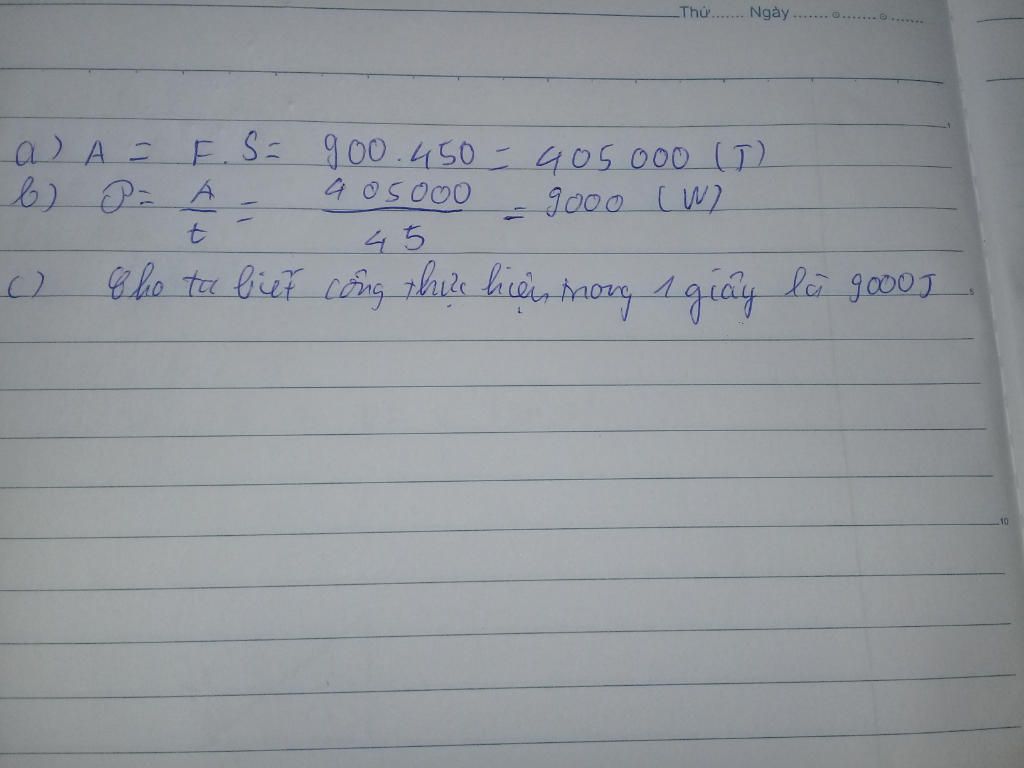 Thứ....... Ngày ....... o ....... o .......
a) A = F. S = 900 . 450 = 405 000 (J)
b) P = A/t = 405000/45 = 9000 (W)
c) Cho ta biết công thực hiện trong 1 giây là 9000J
10